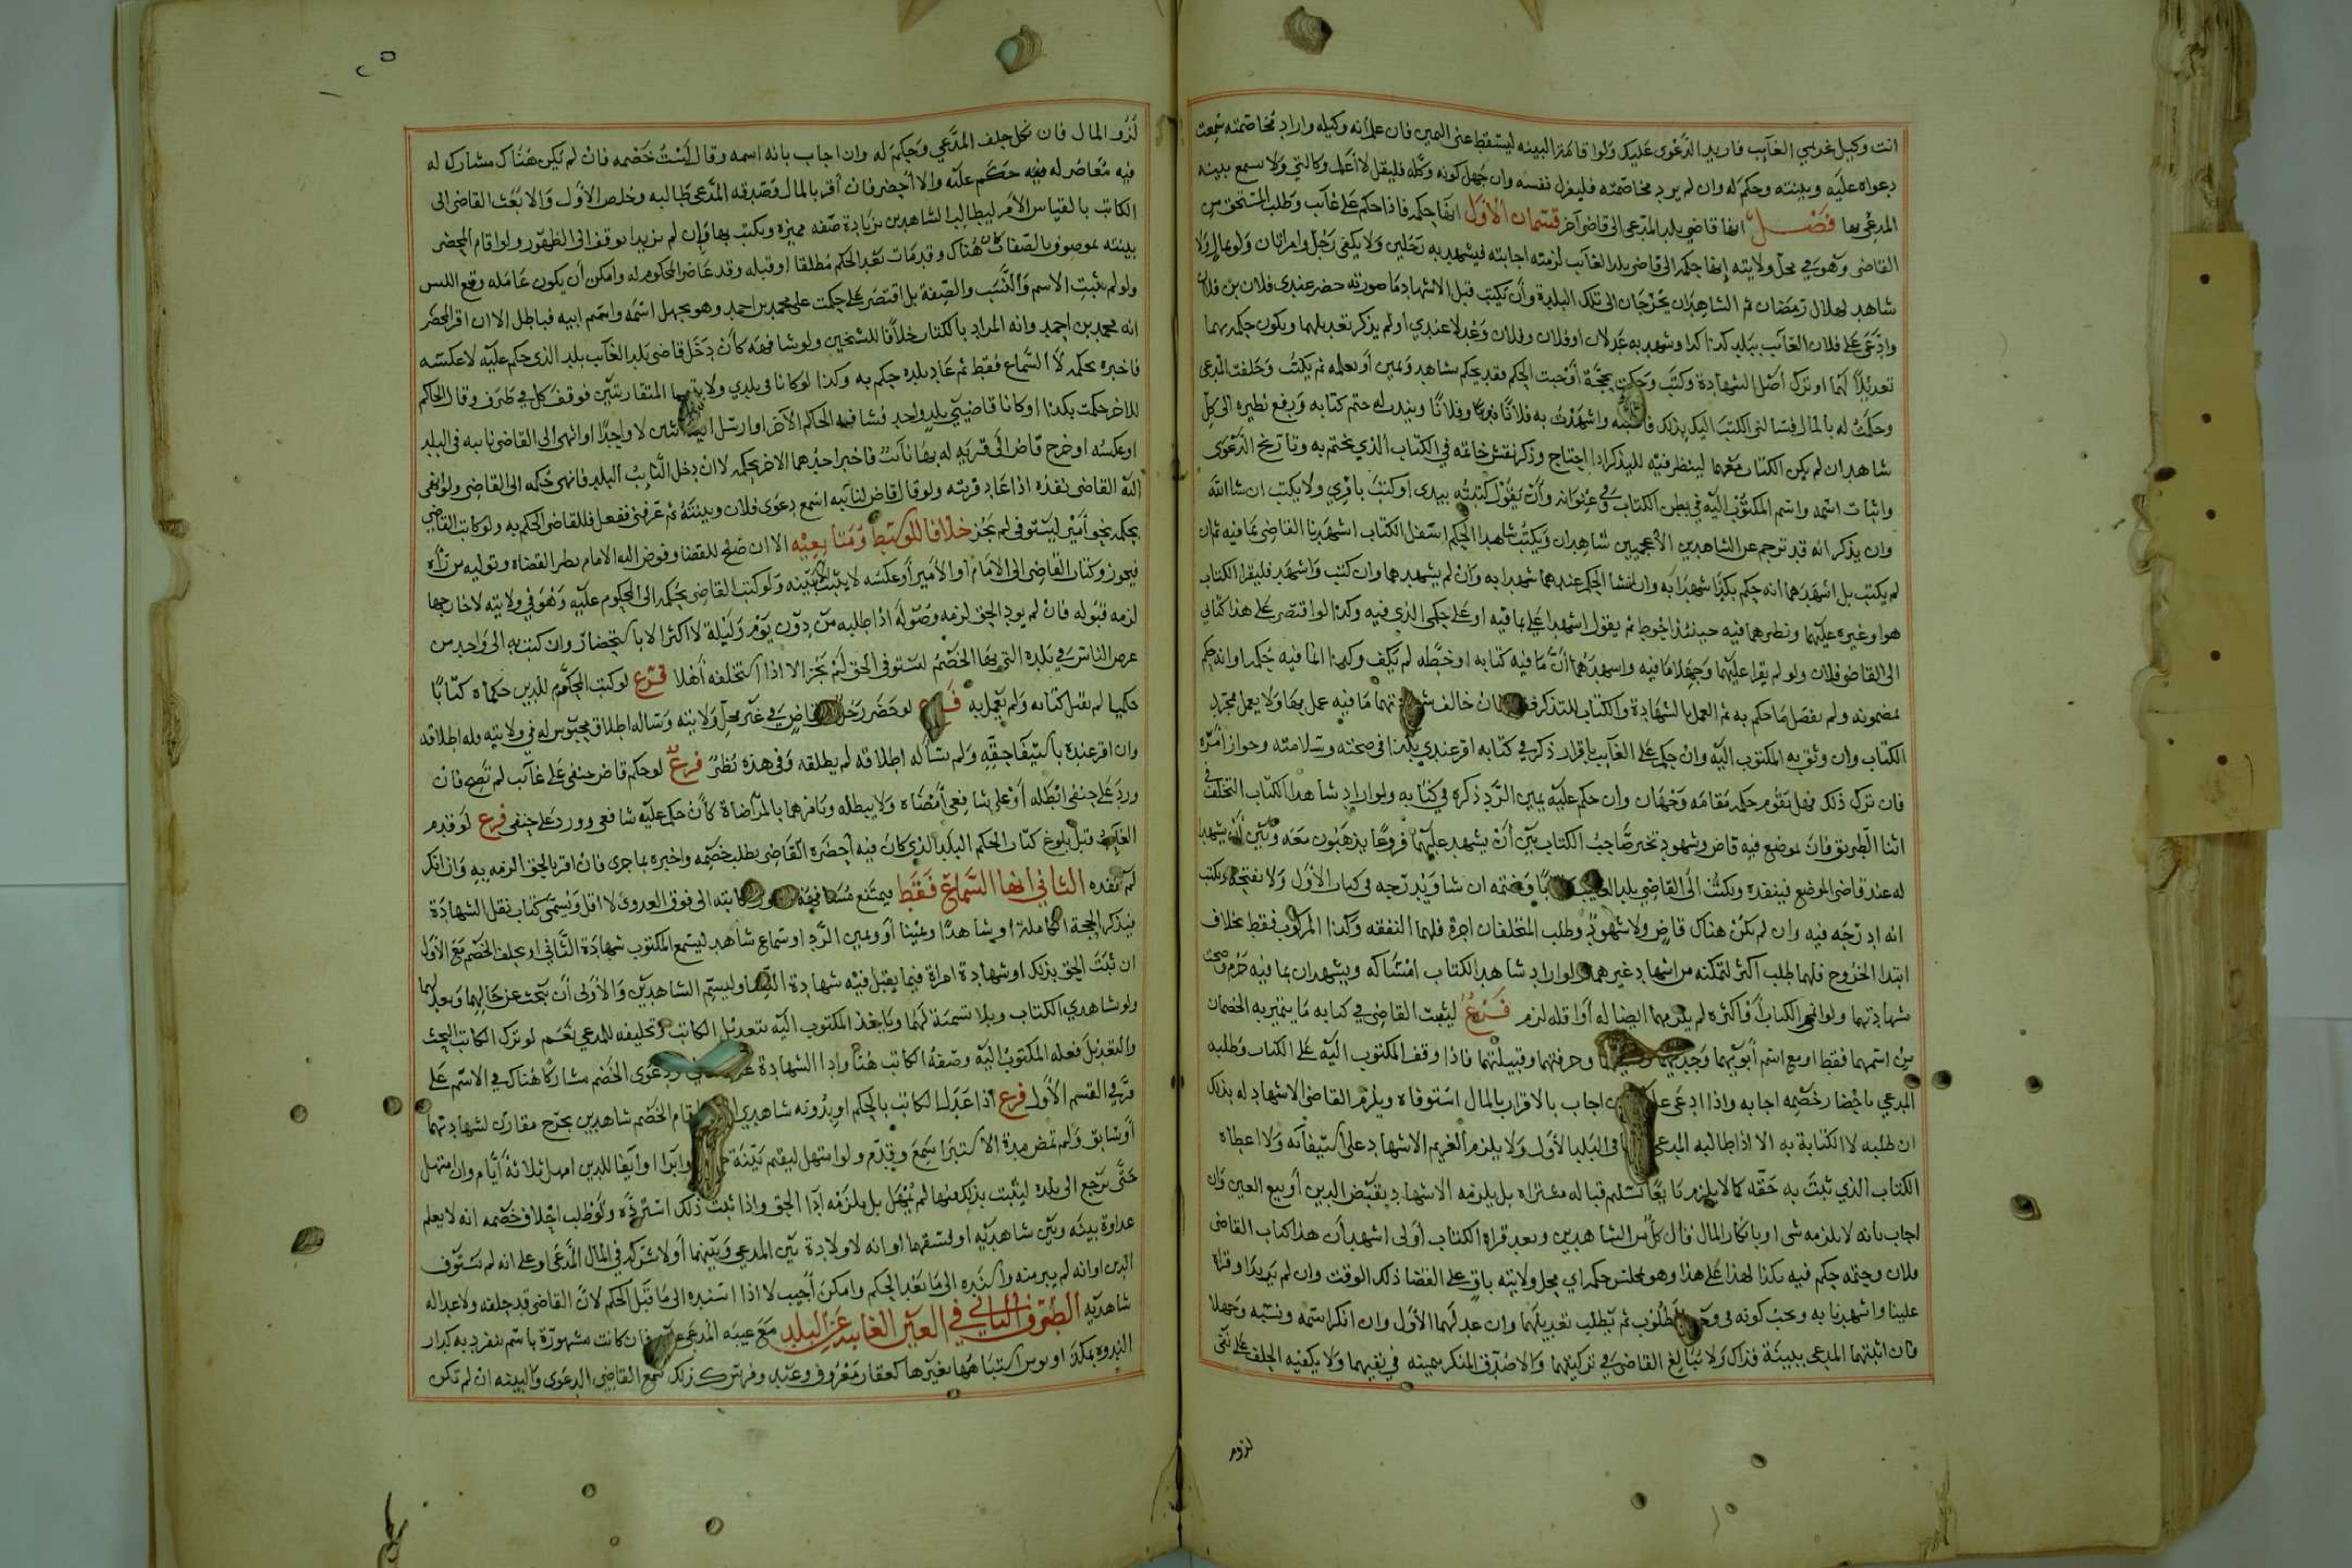 انت وكيل غريمي الغايب فاريد الدعوى عليك ولوا قامة البينه ليسقط عنى اليمين فان علم انه وكيله واراد مخاصمته سمعت
دعواه عليه وبينته وحكم له وان لم يرد مخاصمته فليعزل نفسه وان جهل كونه وكله فليقل لا اعلم وكالتي ولا سمع بينه
المدعي بها فصل انها قاضي بلد المدعى الى قاضي آخر قسمان الاول انها حكمه فاذا حكم على غايب وطلب المستحق من
القاضى وهو في محل ولايته انها حكمه الى قاضى بلد الغايب لزمته اجابته فيشهد به رجلين ولا يكفى رجل وامراتان ولو بمال ولا
شاهد لهلال رمضان ثم الشاهدان يخرجان الى تلك البلدة وان يكتب قبل الاشهاد ما صورته حضر عندى فلان بن فلان
وادعى على فلان الغايب ببلد كذا كذا وشهد به عدلان او فلان وفلان وعدلا عندي او لم يذكر تعديلهما ويكون حكمه بهما
تعديلا لهما او ترك اصل الشهادة وكتب وحكمت بحجة اوجبت الحكم فقد يحكم بشاهد ويمين او بعلمه ثم يكتب وحلفت المدعى
وحكمت له بالمال فسالنى الكتب اليك بذلك واشهدت به فلانا وفلانا ويندب له ختم كتابه ودفع نظيره الى كل
شاهدان لم يكن الكتاب معهما لينظر فيه لليذكرا اذا احتاج وذكر نقش خاتمه في الكتاب الذي يختم به وتاريخ الدعوى
واثبات اسمه واسم المكتوب اليه في بطن الكتاب وفي عنوانه وان يقول كتبته بيدى او كتب بامري ولا يكتب ان شا الله
وان يذكر انه قد ترجم عن الشاهدين الاعجميين شاهدان ويكتب شاهدا الحكم اسفل الكتاب اشهدنا القاضى بما فيه ثم ان
لم يكتب بل اشهدهما انه حكم بكذا شهدا به وان انشا الحكم عندهما شهدا به وان لم يشهدهما وان كتب واشهد فليقرا الكتاب
هو او غيره عليهما ونظرهما فيه حينئذ احوط ثم يقول اشهدا علي بما فيه او على حكمى الذى فيه وكذا لو اقتصر على هذا كتابي
الى القاضى فلان ولو لم يقرا عليهما وجهلا ما فيه واشهدهما ان ما فيه كتابه او خطه لم يكف وكذا ان ما فيه حكمه او انه حكم
بمضمونه ولم يفصل ما حكم به ثم العمل بالشهادة والكتاب للتذكر فان خالف ما فيه عمل بها ولا يعمل بمجرد
الكتاب وان وثق به المكتوب اليه وان حكم على الغايب باقرار ذكر في كتابه اقر عندي بكذا فى صحته وسلامته وجواز امره
فان ترك ذلك فهل يقوم حكمه مقامه وجهان وان حكم عليه بيمين الرد ذكره في كتابه ولو اراد شاهدا الكتاب التخلف في
اثنا الطريق فان بموضع فيه قاض وشهود تخير صاحب الكتاب بين ان يشهد عليهما فروعا يذهبون معه وبين ان يشهدا
له عند قاضى الموضع فينفذه ويكتب الى القاضي بلد الغايب وضمه ان شا ويدرجه في كتاب الاول ولا يفتحه ويكتب
انه ادرجه فيه وان لم يكن هناك قاض ولا شهود وطلب المتخلفان اجرة فلهما النفقه وكذا المركوب فقط بخلاف
ابتدا الخروج فلهما طلب اكثر لتمكنه من اشهاد غيرهما ولو اراد شاهدا الكتاب امساكه ويشهدان بما فيه حرم وصحت
شهادتهما ولو انمحى الكتاب او اكثره لم يلزمهما ايضا له او اقله لزم فرع ليثبت القاضي في كتابه ما يتميز به الخصمان
من اسمهما فقط او مع اسم ابويهما وجديهما وحرفتهما وقبيلتهما فاذا وقف المكتوب اليه على الكتاب وطلبه
المدعي باحضار خصمه اجابه واذا ادعى اجاب بالاقرار بالمال استوفاه ويلزم القاضى الاشهاد له بذلك
ان طلبه لا الكتابة به الا اذا طالبه المدعى فى البلد الاول ولا يلزم الغريم الاشهاد على استيفائه ولا اعطاه
الكتاب الذي ثبت به حقه كما لا يلزم بايعا تسليم قباله مشتراه بل يلزمه الاشهاد بقبض الدين او بيع العين وان
اجاب بانه لا يلزمه شى او بانكار المال قال كل من الشاهدين وبعد قراة الكتاب اولى اشهد ان هذا كتاب القاضى
فلان وختمه حكم فيه بكذا لهذا على هذا وهو بمجلس حكمه اي محل ولايته باق على القضا ذلك الوقت وان لم يريدا وقراه
علينا واشهدنا به ويجب كونه فى المطلوب ثم يطلب تعديلهما وان عدلهما الاول وان انكر اسمه ونسبه وجهلا
فان اثبتهما المدعى ببينة فذاك ولا يبالغ القاضى في تزكيتهما والا صدق المنكر بيمينه في نفيهما ولا يكفيه الحلف على نفى
لزوم
لزوم المال فان نكل حلف المدعي وحكم له وان اجاب بانه اسمه وقال لست خصمه فان لم يكن هناك مشارك له
فيه معاصر له فيه حكم عليه والا احضر فان اقر بالمال وصدقه المدعى طالبه وخلص الاول والا بعث القاضى الى
الكاتب بالقياس الامر ليطالب الشاهدين بزيادة صفه مميزة ويكتب بها فان لم يزيدا توقف الى الظهور ولو اقام المحضر
بينته بموصوف بالصفات كان هناك وقد مات بعد الحكم مطلقا او قبله وقد عاصر المحكوم له وامكن ان يكون عامله وقع اللبس
ولو لم يثبت الاسم والنسب والصفة بل اقتصر على حكمت على محمد بن احمد وهو يجهل اسمه واسم ابيه فباطل الا ان اقر المحضر
انه محمد بن احمد وانه المراد بالكتاب خلافا للشيخين ولو شافهه كان دخل قاضى بلد الغايب بلد الذى حكم عليه لا عكسه
فاخبره بحكمه لا السماع فقط ثم عاد بلده حكم به وكذا لو كانا فى بلدي ولايتهما المتقاربتين فوقف كل في طرف وقال الحاكم
للاخر حكمت بكذا او كانا قاضيي بلد واحد فشافه الحاكم الآخر او ارسل اليه اثنين لا واحدا او انهى الى القاضى نايبه فى البلد
او عكسه او خرج قاض الى قريه له بها نايب فاخبر احدهما الاخر بحكمه لا ان دخل النايب البلد فانهى حكمه الى القاضى ولو انهى
اليه القاضى نفذه اذا عاد قريته ولو قال قاض لنايبه اسمع دعوى فلان وبينته ثم عرفنى ففعل فللقاضى الحكم به ولو كاتب القاضي
بحكمه نحو امير ليستوفى لم يجز خلافا للوسيط ومتابعيه الا ان صلح للقضا وفوض اليه الامام نظر القضاة وتوليه من يراه
فيجوز وكتاب القاضى الى الامام او الامير او عكسه لا يثبت الا ببينه ولو كتب القاضى بحكمه الى المحكوم عليه وهو في ولايته لا خارجها
لزمه قبوله فان لم يود الحق لزمه وصوله اذا طلبه من دون يوم وليلة لا اكثر الا باستحضار وان كتب به الى واحد من
عرض الناس في بلده التي بها الخصم ليستوفى الحق لم يجز الا اذا استخلفه اهلا فرع لو كتب المحكم للذين حكماه كتابا
حكميا لم يقبل كتابه ولم يعمل به فرع لو حضر رجل قاض في غير محل ولايته وساله اطلاق محبوس له فى ولايته فله اطلاقه
وان اقر عنده باستيفا حقه ولم يساله اطلاقه لم يطلقه وفى هذه نظر فرع لو حكم قاض حنفى على غايب لم تصح فان
ورد على حنفى ابطله او على شافعى امضاه ولا يبطله ويامرهما بالمراضاة كان حكم عليه شافعى وورد على حنفى فرع لو قدم
الغايب قبل بلوغ كتاب الحكم البلد الذى كان فيه احضره القاضى بطلب خصمه واخبره بما جرى فان اقر بالحق الزمه به وان انكر
لم ينفذه الثاني انها السماع فقط فيمتنع مشافهة كتابته الى فوق العدوى لا اقل ويسمى كتاب نقل الشهادة
فيذكر الحجة الكاملة او شاهدا ويمينا او ويمين الرد او سماع شاهد ليسمع المكتوب شهادة الثاني او يحلف الخصم مع الاول
ان ثبت الحق بذلك او شهادة امراة فيما يقبل فيه شهادة النسا وليسم الشاهدين والاولى ان يبحث عن حالهما ويعدلهما
ولو شاهدي الكتاب وبلا تسمية لهما وياخذ المكتوب اليه بتعديل الكاتب وتحليفه للمدعي نعم لو ترك الكاتب البحث
والتعديل فعله المكتوب اليه وصفة الكاتب هنا واذا الشهادة ودعوى الخصم مشاركا هناك في الاسم على
مر في القسم الاول فرع اذا عدل الكاتب بالحكم او بدونه شاهدي اقام الخصم شاهدين بجرح مقارن لشهادتهما
او سابق ولم تمض مدة الاستبرا سمع وقدم ولو استهل ليقيم بينة وابرا او ايفا للدين امهل ثلاثة ايام وان استمهل
حتى يرجع الى بلده ليثبت بذلك منها لم يمهل بل يلزمه ادا الحق واذا ثبت ذلك استرده ولو طلب احلاف خصمه انه لا يعلم
عداوة بينه وبين شاهديه او فسقهما او انه لا ولادة بين المدعي وبينهما او لا شركه في المال المدعى او على انه لم يستوف
الدين او انه لم يبر منه واسنده الى ما بعد الحكم وامكن اجيب لا اذا اسنده الى ما قبل الحكم لان القاضى قد حلفه ولا عدالة
شاهديه الطرف الثاني في العين الغايبه عن البلد مع غيبه المدعى عليه فان كانت مشهورة باسم ينفرد به كدار
الندوه بمكة او يومن اشتباهها بغيرها كعقار معروف وعبد وفرس ترك ذلك سمع القاضى الدعوى والبينه ان لم تكن